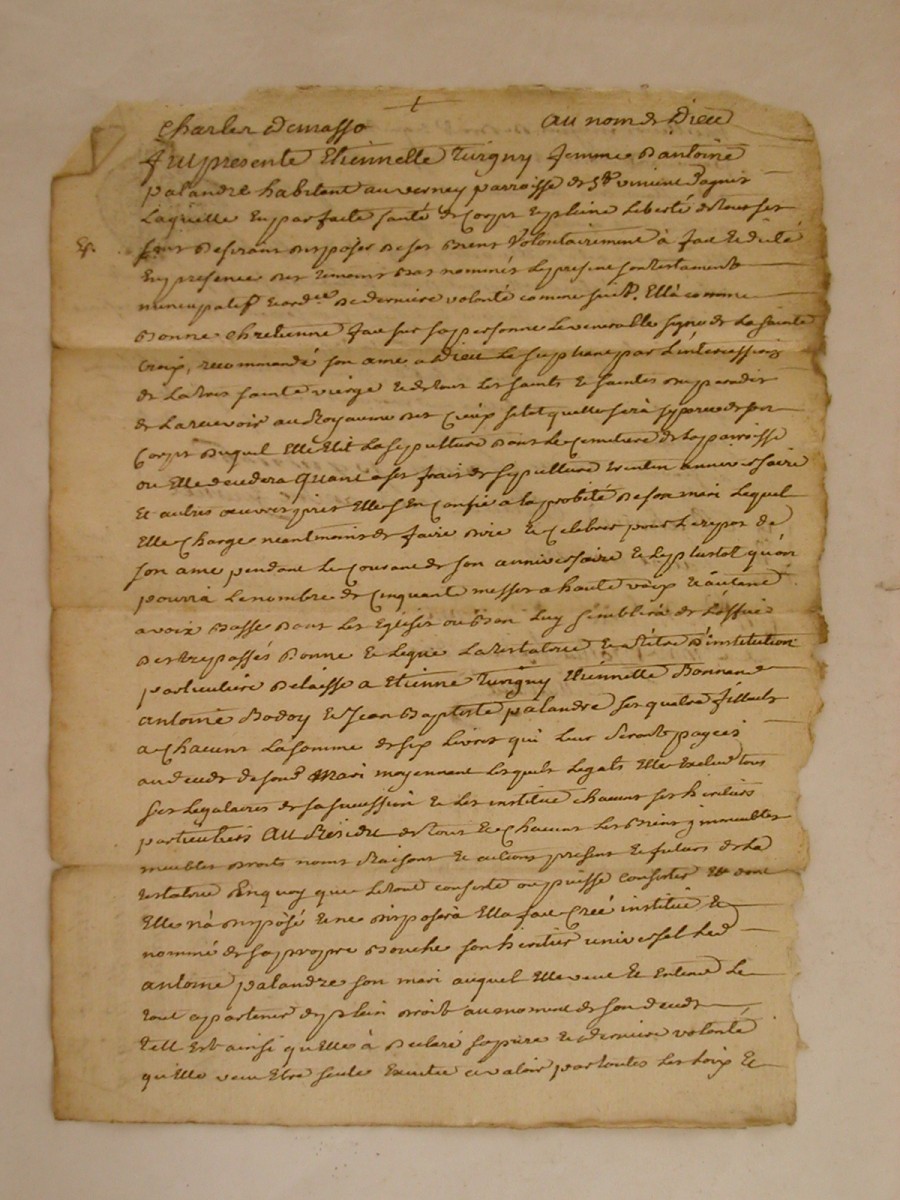 Charles Demasso au nom de Dieu
Fut presente Etiennette Turigny femme d'antoine
palandre habitant au verney parroisse de St vincent
Laquelle En parfaite santé de Corps et pleine Liberté de tous ses
sens desirant disposer de ses biens Volontairement à fait et dicté
En presence des temoins bas nommés le present son testament
nuncupatif et ordce de derniere volonté comme suit. Elle comme
bonne chretienne fait sur sa personne Le venerable signe de La sainte
Croix, recommandé son ame a Dieu Le supliant par L'intercession
de La tres sainte vierge et de tous Les saints et saintes du paradis
de La recevoir au Royaume des Cieux sitot quelle sera de son
Corps duquel Elle Elit La sepulture dans Le Cemetiere de La parroisse
ou Elle decedera quant a ses frais de sepulture anniversaire
Et autres oeuvres pies Elle s'En Confie a la probité de son mari Lequel
Elle Charge neantmoins de faire dire et Celebrer pour Le repos de
son ame pendant Le Courant de son anniversaire et Le plustot qu'on
pourra Le nombre de Cinquante messes a haute voix et autant
a voix basse dans Les Eglises ou bon Luy semblera
des trepassés donne et Legue La testatrice et a titre d'institution
particuliere delaisse a Etienne Turigny Etiennette Bonnand
antoine Bodoy et Jean Baptiste palandre ses quatre filleuls
a Chacun La somme de six Livres qui Leur seront payées
au deceds de sond. Mari moyennant Lesquels Legats Elle Exclud tous
ses Legataires de sa succession et Les institue Chacun ses heritiers
particuliers Au Residu de tous et Chacun Les biens immeubles
meubles droits noms Raisons et actions present et futurs de La
testatrice En quoy que Le tout consiste ou puisse consister et dont
Elle n'à disposé et ne disposera Ella fait Créé institué et
nommé de sa propre bouche son heritier universel Led.
antoine palandre son mari auquel Elle veut et Entend Le
tout appartenir de plein droit au moment de son deceds
tell Est ainsi qu'Elle à declaré sa pure et derniere volonté
qu'Elle veut Etre seule Executée et valoir par toutes Les Loix et